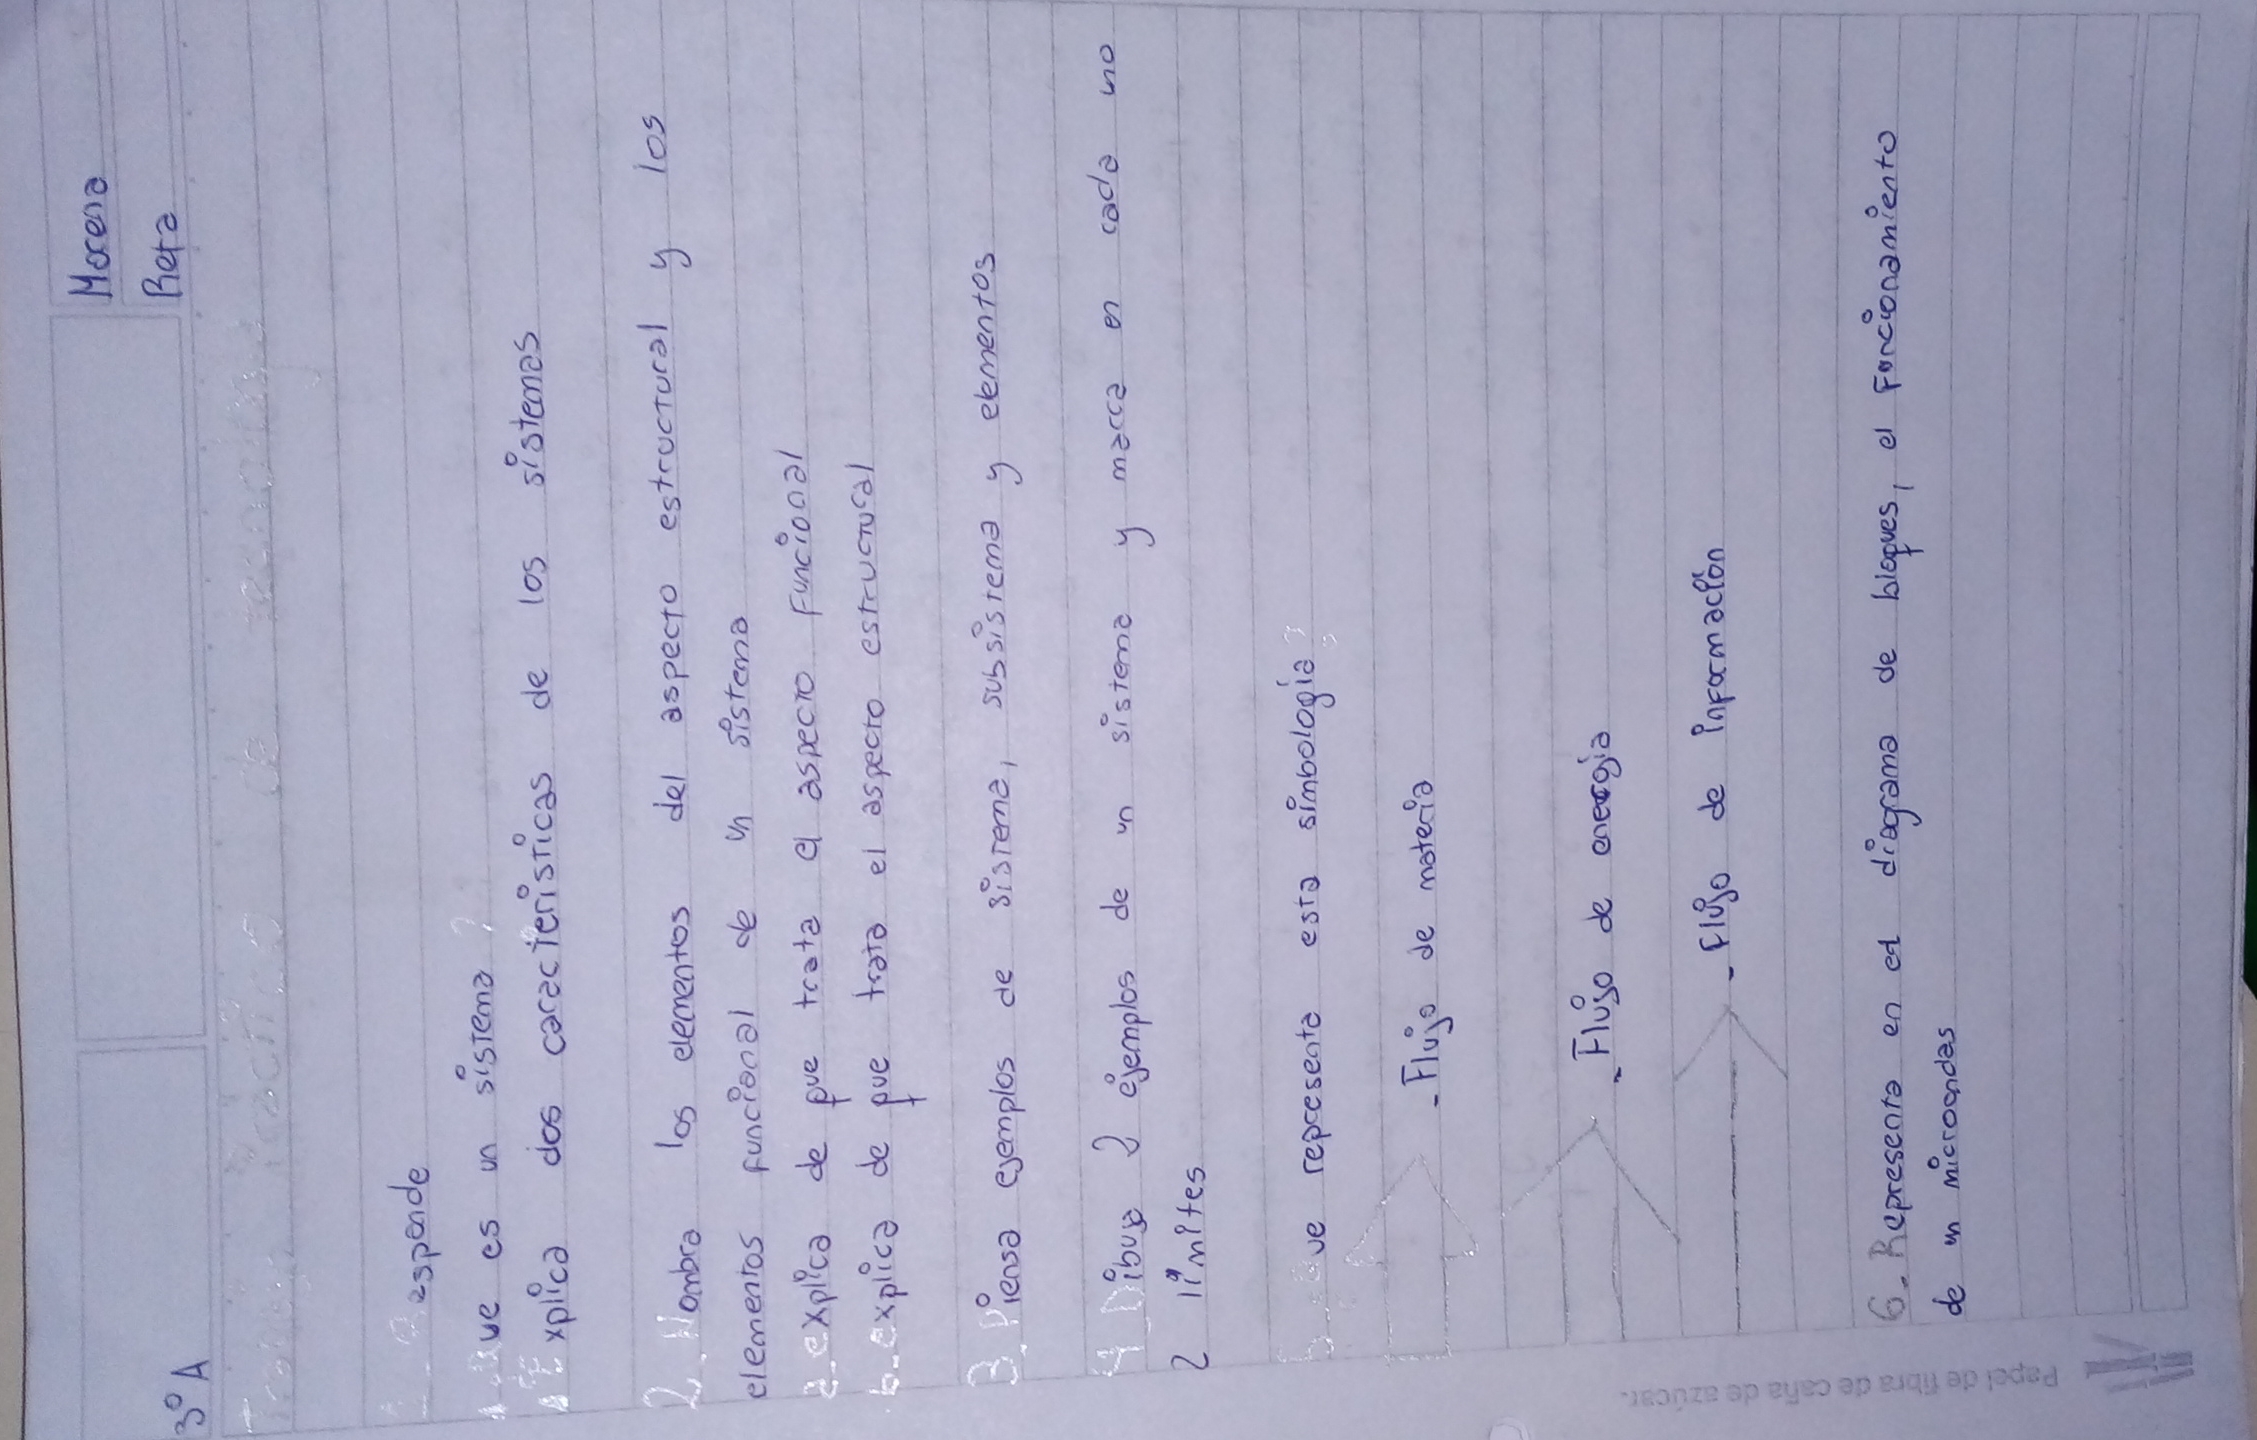 3° A
Morena
Reta
Trabajo Práctico de tecnología
1_ Responde
1. Que es un sistema?
1. Explica dos caracteristicas de los sistemas
2_ Nombra los elementos del aspecto estructural y los
elementos funcional de un sistema
a_explica de que trata el aspecto funcional
b_explica de que trata el aspecto estructural
3_Piensa ejemplos de sistema, subsistema y elementos
4_Dibuja 2 ejemplos de un sistema y marca en cada uno
2 límites
5_Que representa esta simbología?
-Flujo de materia
-Flujo de energia
-Flujo de información
6_Representa en el diagrama de bloques, el funcionamiento
de un microondas
Papel de fibra de caña de azúcar.